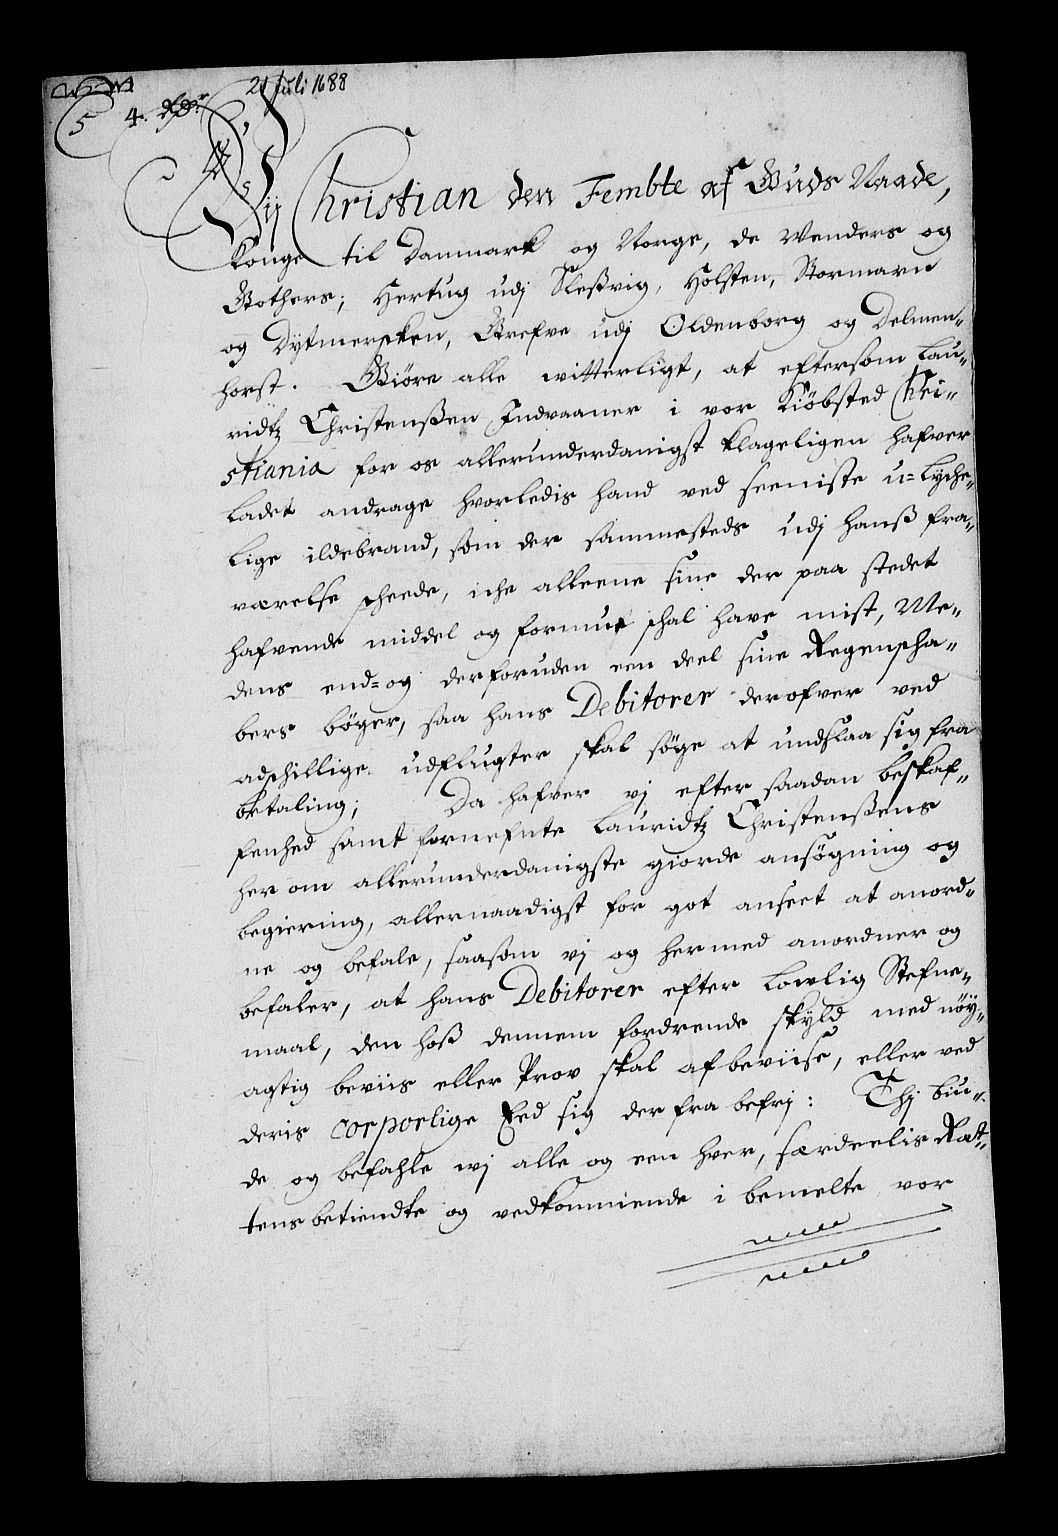 21 Juli 1688
5 4. Rdr
Vij Christian den Fembte af Guds Naade,
Konge til Danmark og Norge, de Wenders og
Gothers; Hertug udj Sleßvig, Holsten, Stormarn
og Dytmersken, Grefve udj Oldenborg og Delmen-
horst. Giöre alle witterligt, at eftersom Lau-
ridtz Christenßen Indvaaner i vor Kiöbsted Chri-
stiania for os allerunderdanigst klageligen hafver
ladet andrage hvorledis hand ved seeniste u-lyche-
lige ildebrand, som der sammesteds udj hanß fra-
værelse scheede, iche alleene sine der paa stedet
hafvende middel og formue schal have mist, Me-
dens end-og derforuden een deel sine Regenscha-
bers böger, saa hans Debitorer derofver ved
adschillige udflugter skal söge at undslaa sig fra
betaling; Da hafver vj efter saadan beskaf-
fenhed samt fornefnte Lauridtz Christenßens
her om allerunderdanigste giorde ansögning og
begiering, allernaadigst for got anseet at anord-
ne og befale, saasom vj og hermed anordner og
befaler, at hans Debitorer efter Lowlig Stefne-
maal, den hoß dennem fordrende skyld med nöy-
agtig beviis eller Prov skal afbeviise, eller ved
deris corporlige Eed sig der fra befrj: Thj biu-
de og befahle wj alle og een hver, særdeelis Ræt-
tens betiendte og vedkommende i bemelte vor